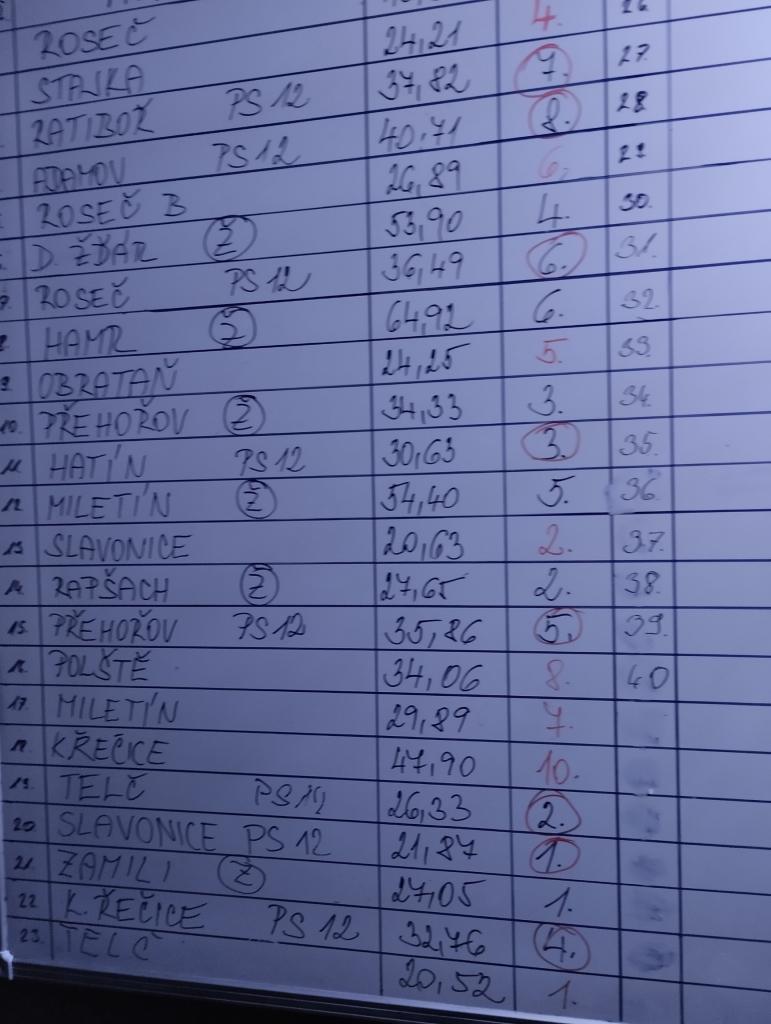 ROSEČ
STAJKA 24,21 4. 26
RATIBOŘ PS 12 37,82 7. 27.
ADAMOV PS 12 40,71 8. 28
ROSEČ B 26,89 6. 29
D. ŽĎÁR Ž 53,90 4. 30.
7. ROSEČ PS 12 36,49 6. 31.
8. HAMR Ž 64,92 6. 32.
9. OBRATAŇ 24,25 5. 33.
10. PŘEHOŘOV Ž 34,33 3. 34.
11. HATÍN PS 12 30,63 3. 35.
12. MILETÍN Ž 54,40 5. 36
13 SLAVONICE 20,63 2. 37.
14. RAPŠACH Ž 27,65 2. 38.
15. PŘEHOŘOV PS 12 35,86 5. 39.
16. POLŠTĚ 34,06 8. 40
17. MILETÍN 29,89 7.
18. KŘEČICE 47,90 10.
19. TELČ PS 12 26,33 2.
20. SLAVONICE PS 12 21,87 1.
21. ZAMILI Ž 27,05 1.
22 K. ŘEČICE PS 12 32,76 4.
23. TELČ 20,52 1.